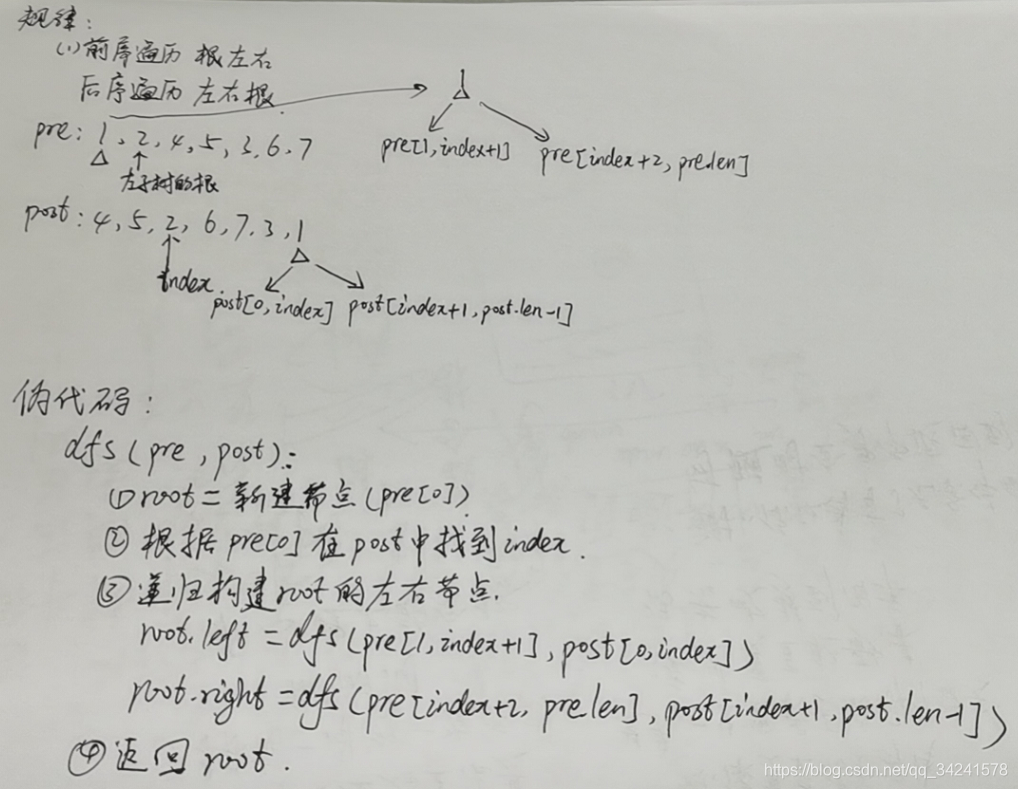 规律:
(1)前序遍历 根左右
后序遍历 左右根.
pre: 1, 2, 4, 5, 3, 6, 7
左子树的根
pre[1,index+1] pre[index+2, pre.len]
post: 4, 5, 2, 6, 7, 3, 1
index.
post[0,index] post[index+1,post.len-1]
伪代码:
dfs(pre, post):
①root = 新建节点(pre[0])
②根据pre[0]在post中找到index.
③递归构建root的左右节点.
root.left = dfs(pre[1,index+1], post[0,index])
root.right = dfs(pre[index+2, pre.len], post[index+1, post.len-1])
④返回 root.
https://blog.csdn.net/qq_34241578